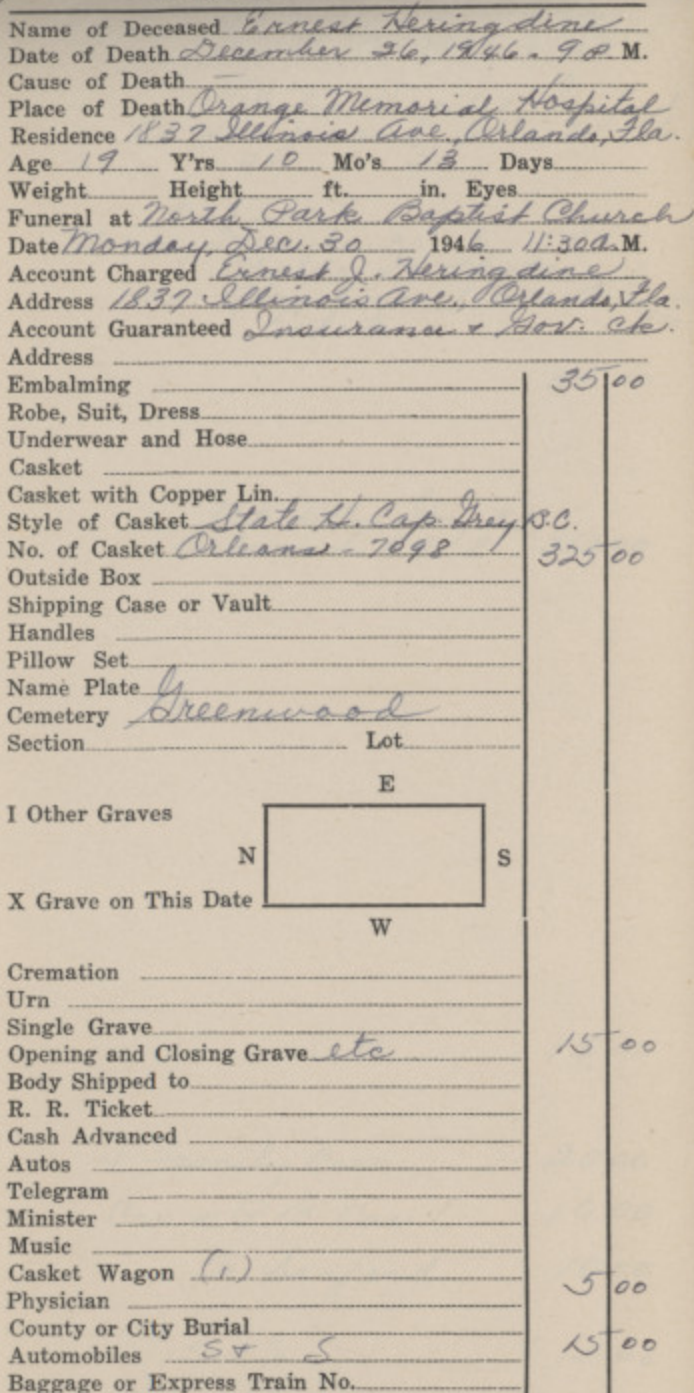 Name of Deceased Ernest Heringdine
Date of Death December 26, 1946. 9 P. M.
Cause of Death —
Place of Death Orange Memorial Hospital
Residence 1837 Illinois Ave., Orlando, Fla.
Age 19 Y'rs 10 Mo's 13 Days
Weight Height ft. in. Eyes
Funeral at North Park Baptist Church
Date Monday, Dec. 30 1946 11:30 A.M.
Account Charged Ernest J. Heringdine
Address 1837 Illinois Ave., Orlando, Fla.
Account Guaranteed Insurance & Gov. ck.
Address
Embalming 35 00
Robe, Suit, Dress
Underwear and Hose
Casket
Casket with Copper Lin.
Style of Casket State H. Cap Grey B.C.
No. of Casket Orleans - 7098 325 00
Outside Box
Shipping Case or Vault
Handles
Pillow Set
Name Plate
Cemetery Greenwood
Section Lot
E
I Other Graves
N S
X Grave on This Date
W
Cremation
Urn
Single Grave
Opening and Closing Grave etc 15 00
Body Shipped to
R. R. Ticket
Cash Advanced
Autos
Telegram
Minister
Music
Casket Wagon (1) 5 00
Physician
County or City Burial
Automobiles S & S 15 00
Baggage or Express Train No.